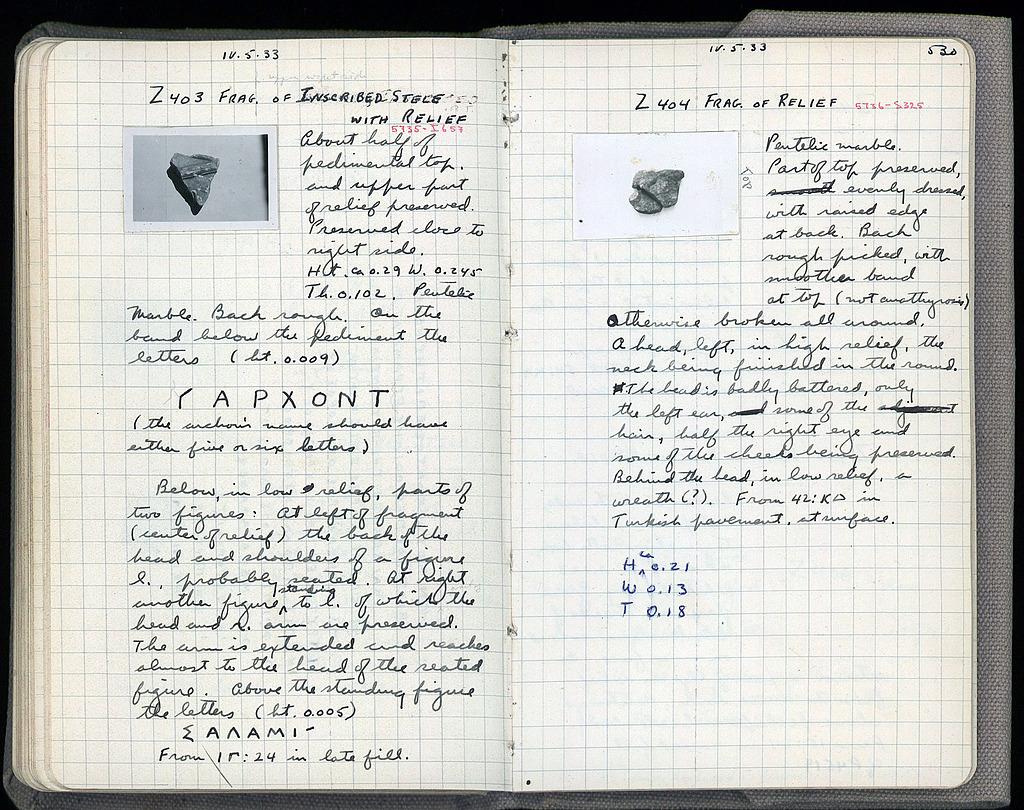 IV.5.33
upper right side
Z 403 FRAG. OF INSCRIBED STELE
WITH RELIEF
5735-I 657
About half of
pedimental top.
and upper part
of relief preserved.
Preserved close to
right side.
Ht. ca 0.29 W. 0.245
Th. 0.102. Pentelic
marble. Back rough. On the
band below the pediment the
letters (ht. 0.009)
ΥΑΡΧΟΝΤ
(the archon's name should have
either five or six letters)
Below, in low relief, parts of
two figures: At left of fragment
(center of relief) the back of the
head and shoulders of a figure
l., probably seated. At right
another figure, standing to l. of which the
head and r. arm are preserved.
The arm is extended and reaches
almost to the head of the seated
figure. Above the standing figure
the letters (ht. 0.005)
ΣΑΛΑΜΙ-
From ΙΓ:24 in late fill.
IV.5.33
530
Z 404 FRAG. OF RELIEF 5736-S325
TOP
Pentelic marble.
Part of top preserved,
smooth evenly dressed,
with raised edge
at back. Back
rough picked, with
smoother band
at top (not anathyrosis)
otherwise broken all around.
A head, left, in high relief, the
neck being finished in the round.
The head is badly battered, only
the left ear, and some of the adjacent
hair, half the right eye and
some of the cheeks being preserved.
Behind the head, in low relief, a
wreath (?). From 42:ΚΔ in
Turkish pavement, at surface.
H ca 0.21
W 0.13
T 0.18